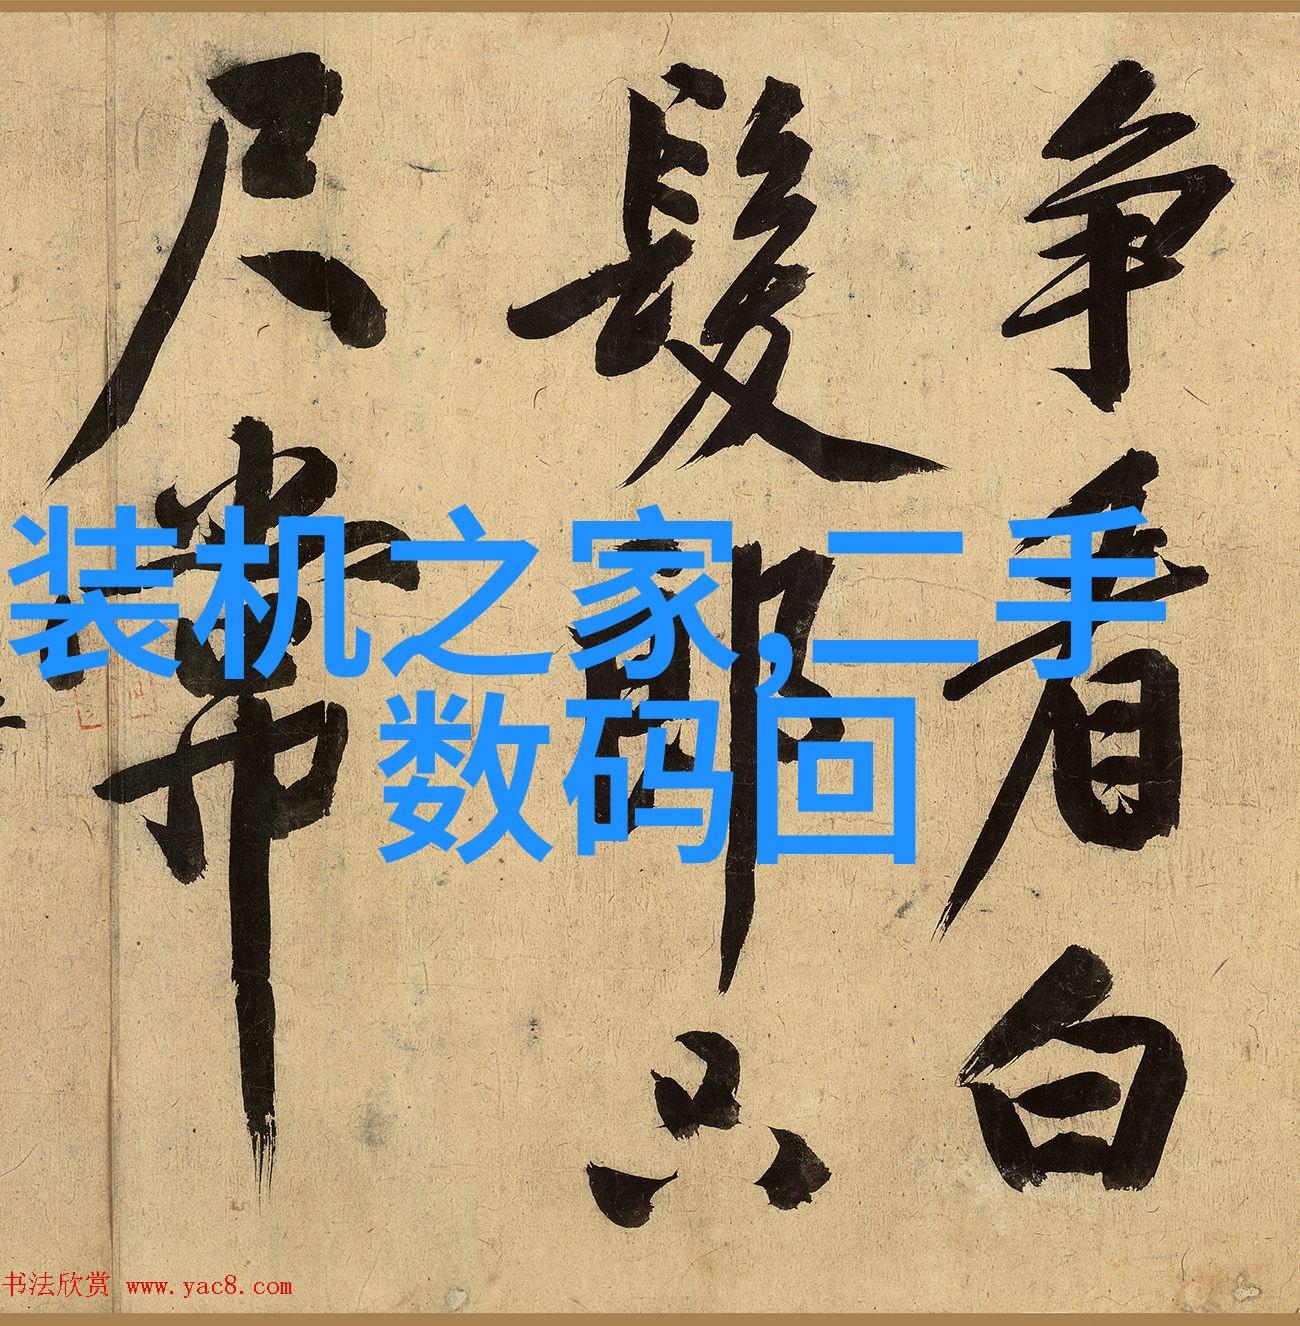 争看白
髮郎只
尺常
装机之家,二手
数码回
书法欣赏 www.yac8.com